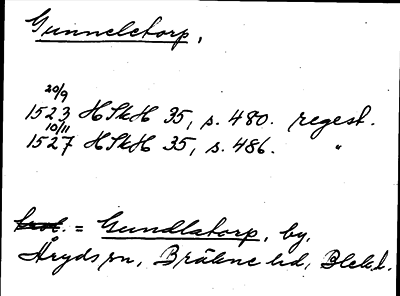 Gunneletorp.
20/9
1523 HSkH 35, s. 480. regest.
10/11
1527 HSkH 35, s. 486. "
= Gundlatorp, by,
Åryds sn, Bräkne hd, Blek. l.